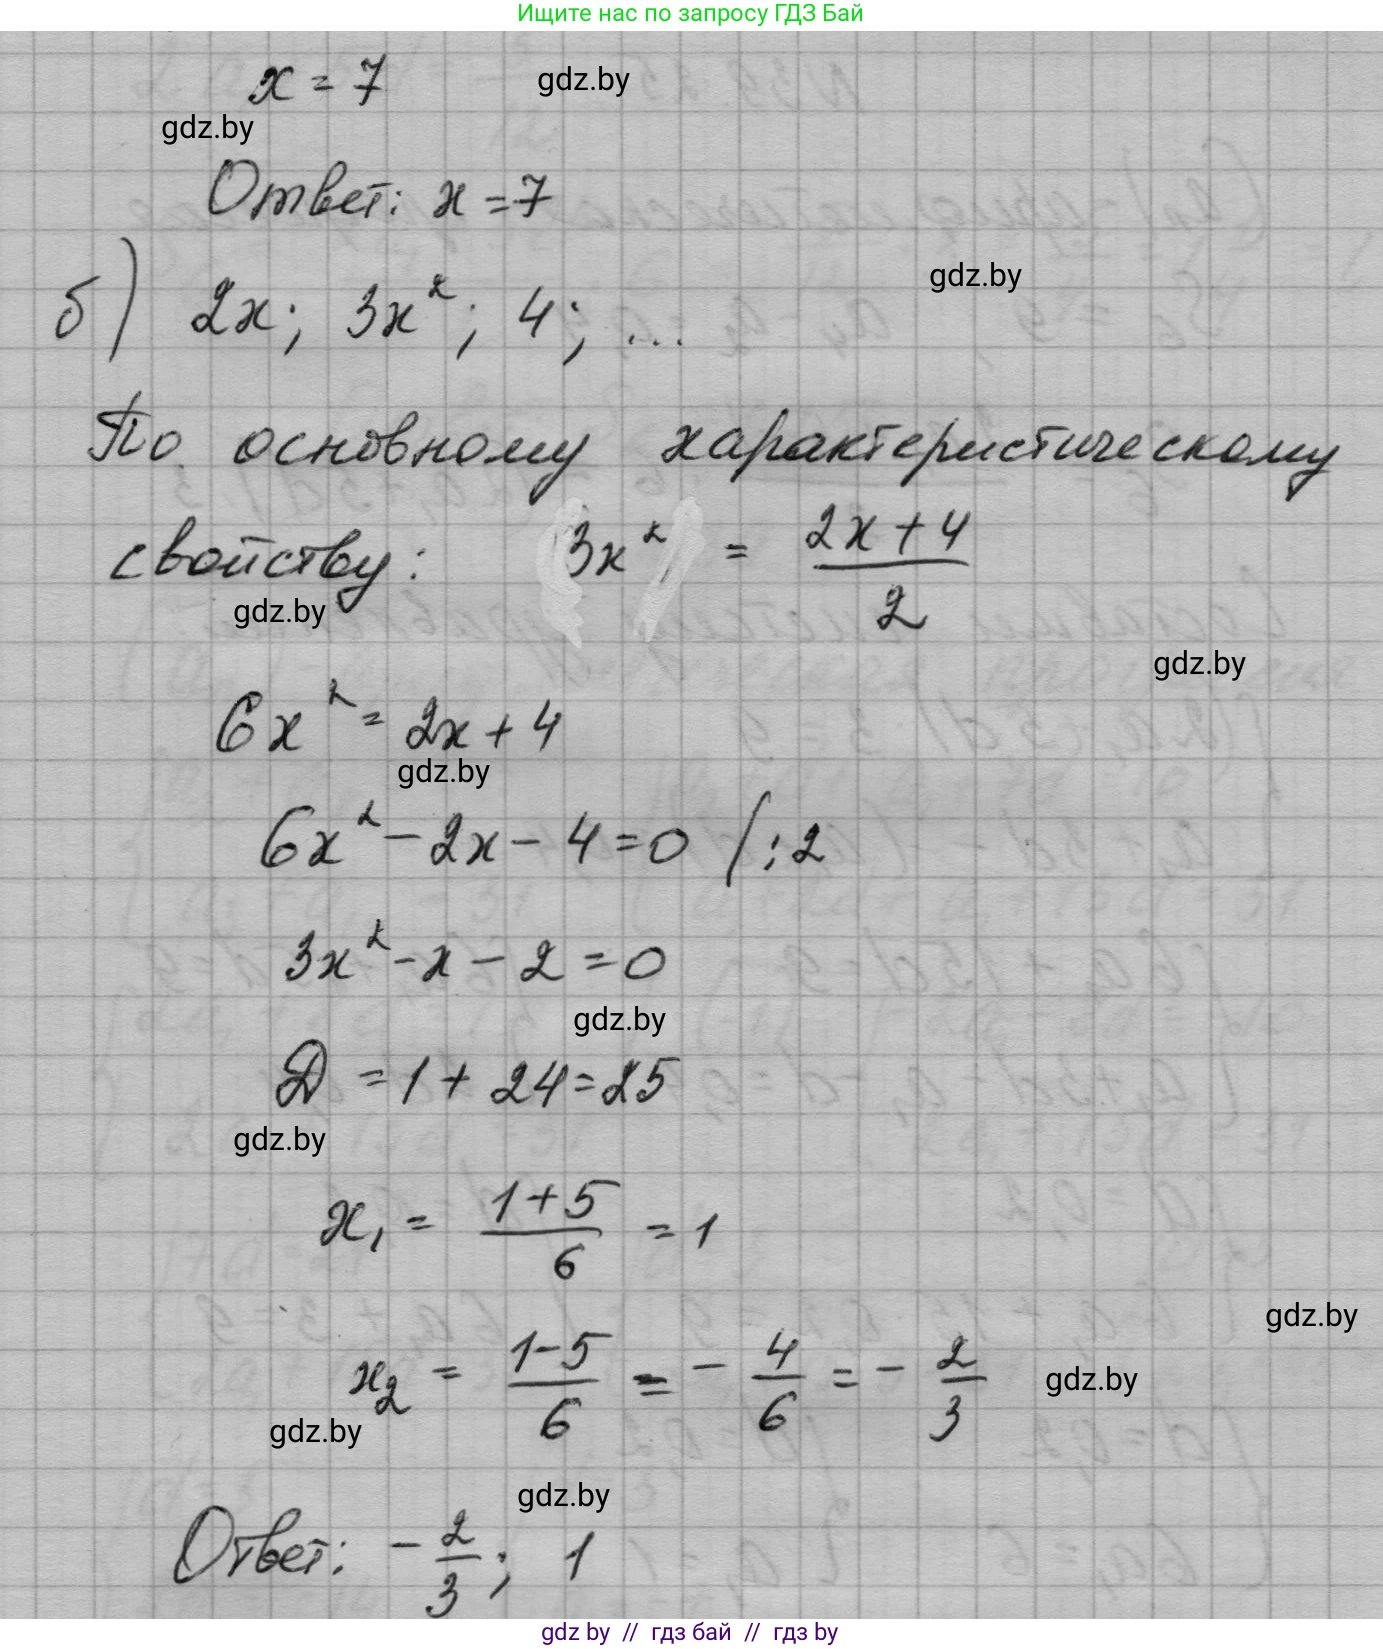 Ищите нас по запросу ГДЗ Бай
x = 7
gdz.by
gdz.by
Ответ: x = 7
gdz.by
б) 2x; 3x²; 4; ...
По основному характеристическому
свойству: 3x² = (2x + 4)/2
gdz.by
gdz.by
6x² = 2x + 4
gdz.by
6x² - 2x - 4 = 0 / :2
3x² - x - 2 = 0
gdz.by
D = 1 + 24 = 25
gdz.by
x₁ = (1 + 5)/6 = 1
gdz.by
x₂ = (1 - 5)/6 = - 4/6 = - 2/3
gdz.by
gdz.by
gdz.by
Ответ: - 2/3; 1
gdz by // гдз бай // гдз by